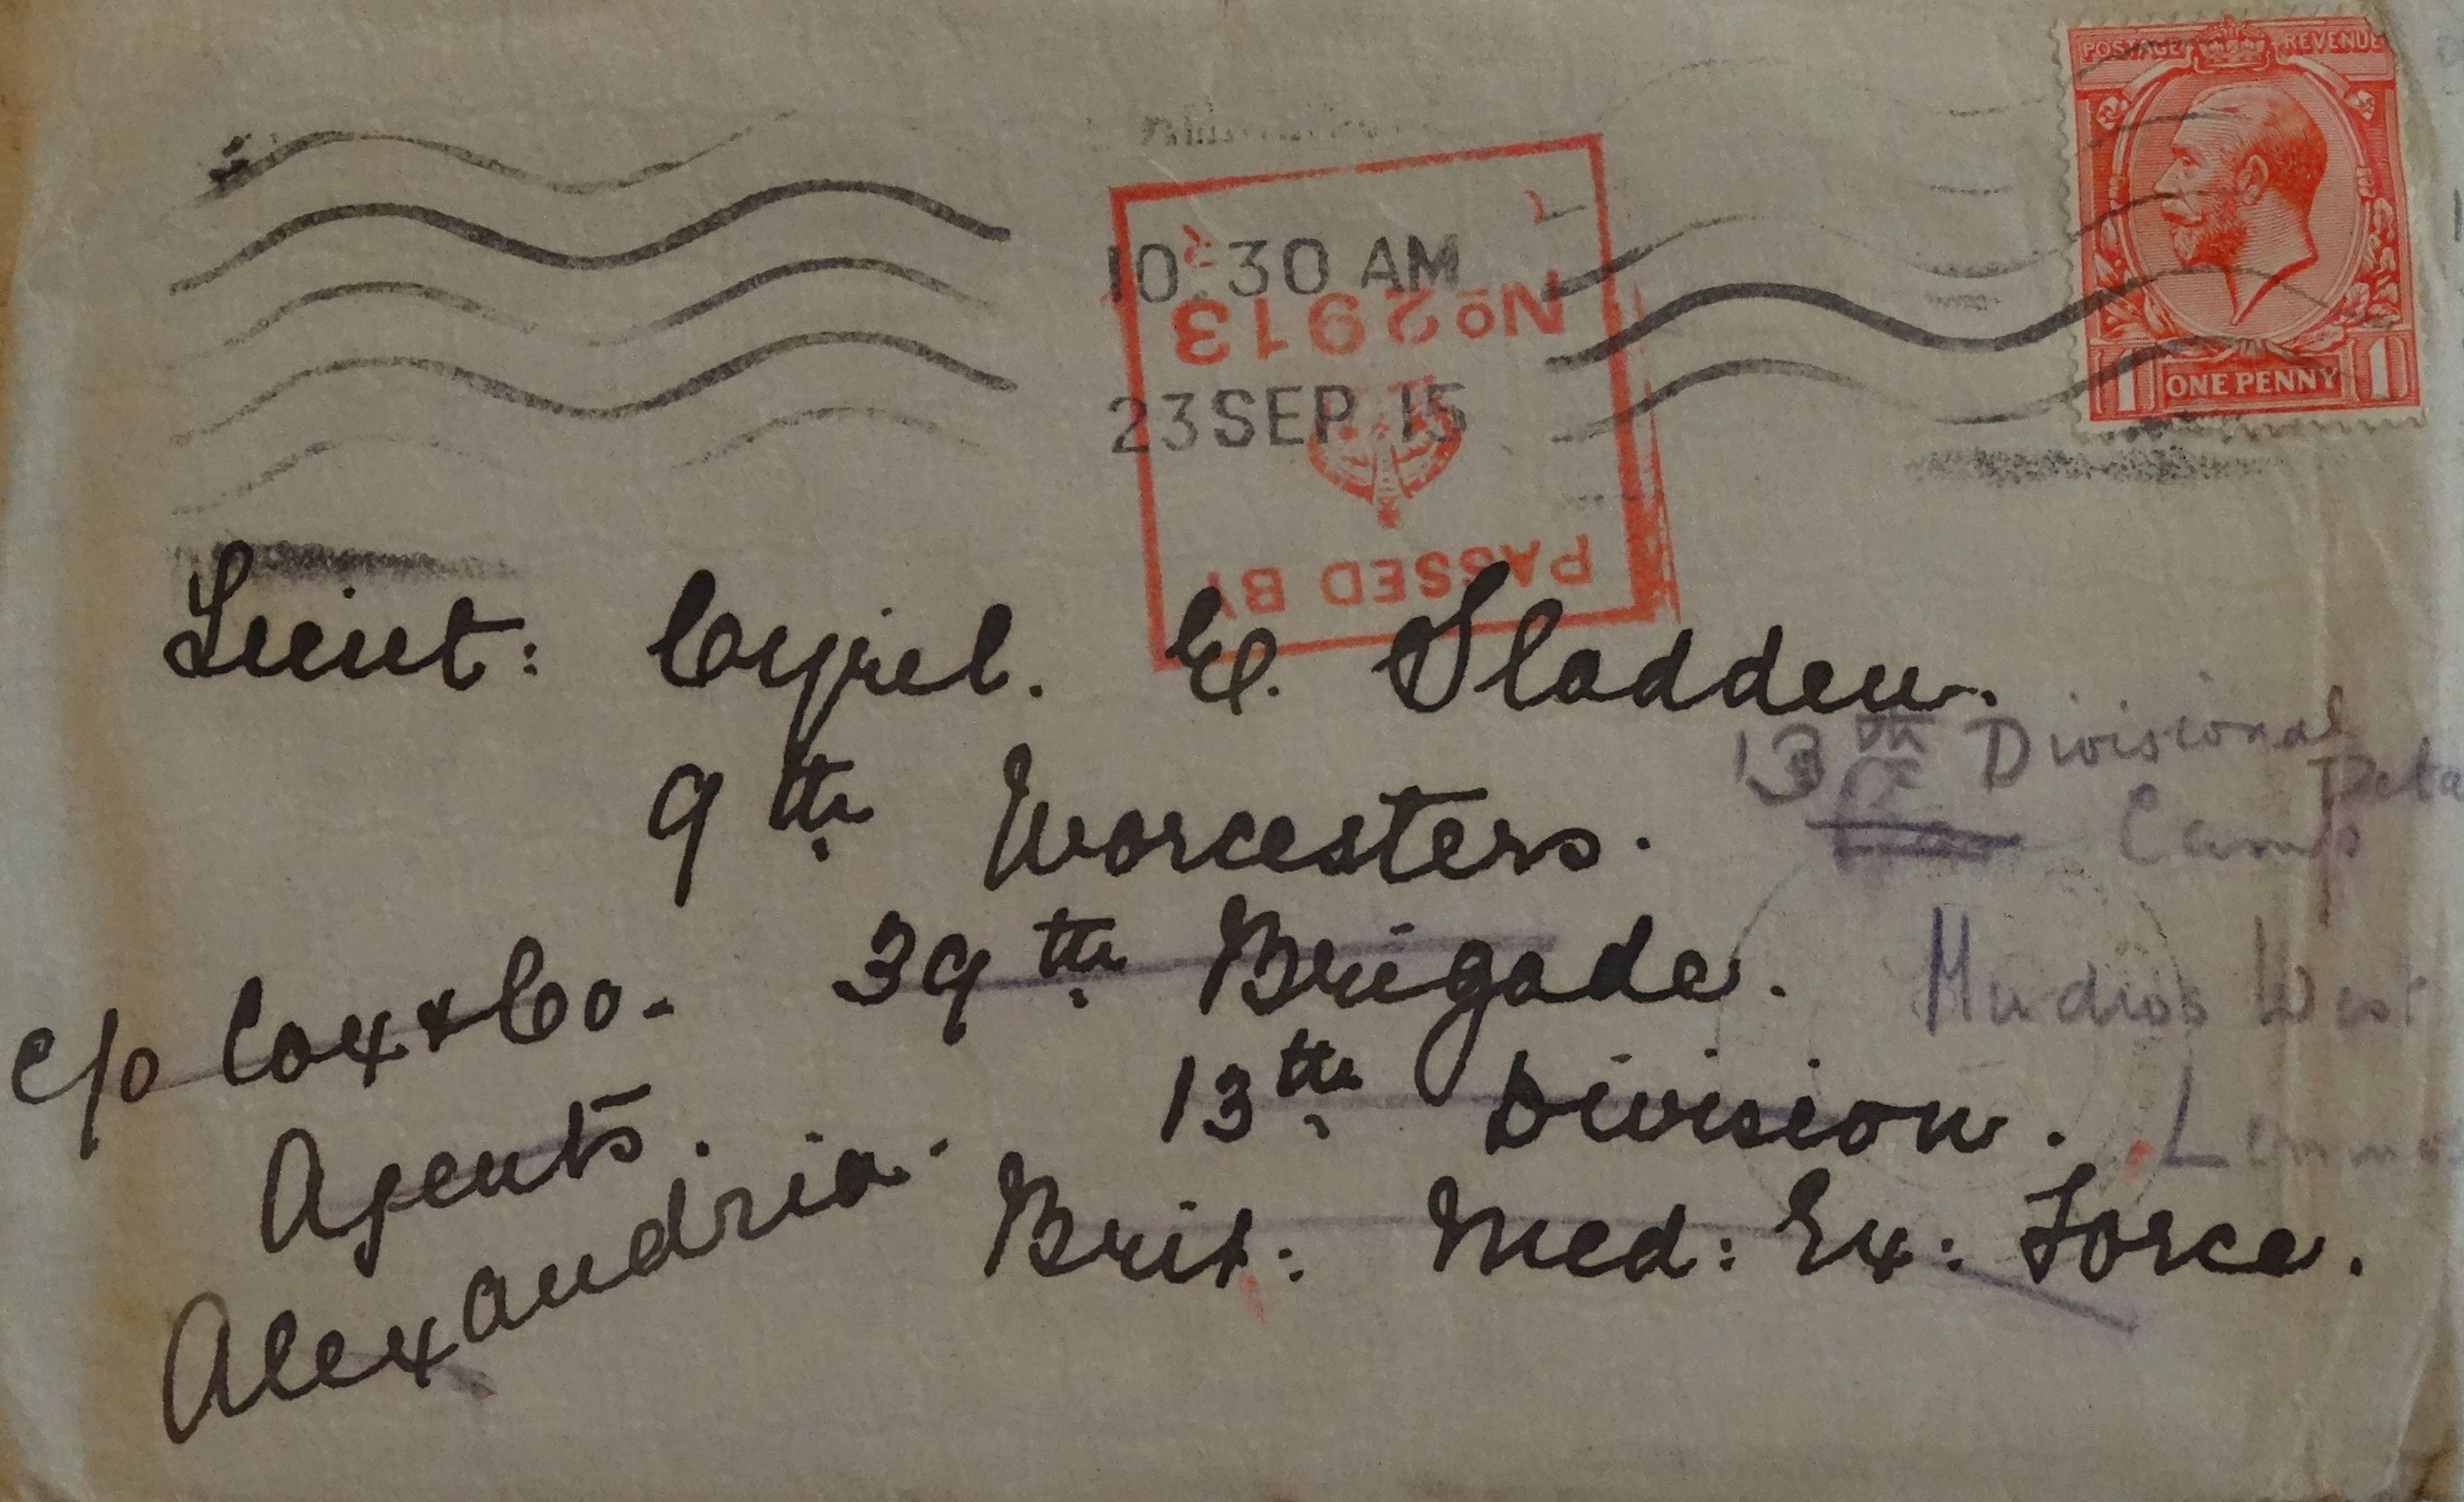 POSTAGE REVENUE
1 ONE PENNY 1
10.30 AM
23 SEP 15
PASSED BY
No 2913
Lieut: Cyril. E. Sladden.
9th Worcesters.
39th Brigade.
13th Division.
Brit: Med: Ex: Force.
c/o Cox & Co.
Agents.
Alexandria.
13th Divisional
Camp
Mudros West